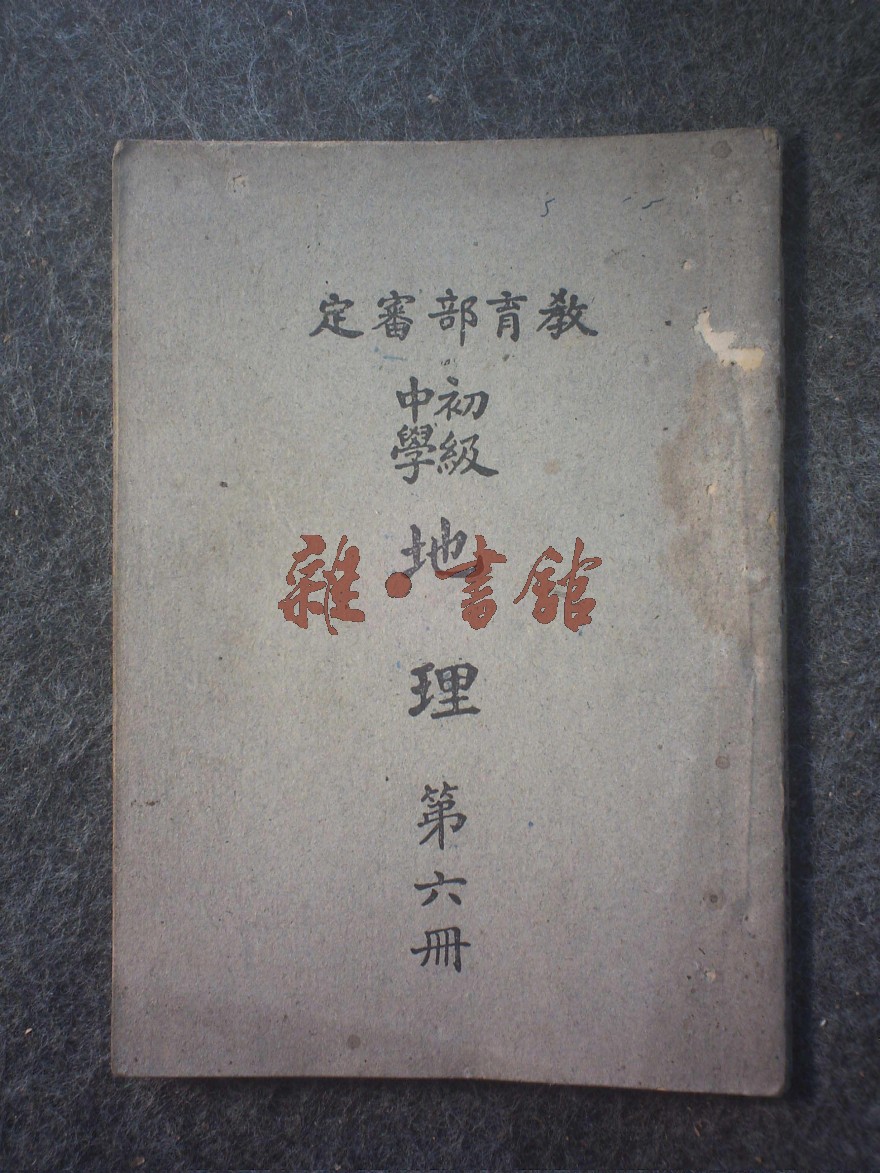 教育部審定
初級
中學
地理 第六冊
雜·書館
5 5